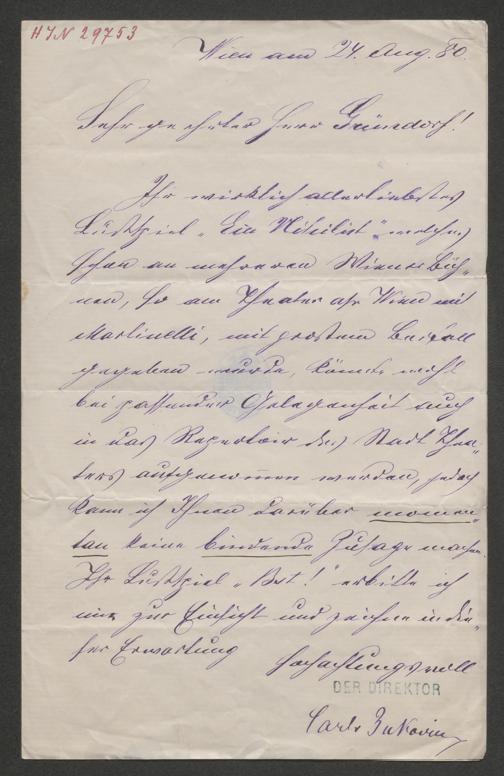 HIN 29753
Wien am 24. Aug. 80.
Sehr geehrter Herr Gründorf!
Ihr wirklich allerliebstes
Lustspiel „Ein Nihilist", welches
schon an mehreren Wiener Büh„
nen, so am Theater a/d Wien mit
Martinelli, mit großem Beifall
gegeben wurde, könnte wohl
bei passender Gelegenheit auch
in das Repertoir des Stadt Thea„
ters aufgenommen werden, jedoch
kann ich Ihnen darüber momen„
tan keine bindende Zusage machen.
Ihr Lustspiel erbitte ich
mir zur Einsicht und zeichne in die„
ser Erwartung
hochachtungsvoll
DER DIREKTOR
Carl v Bukovics